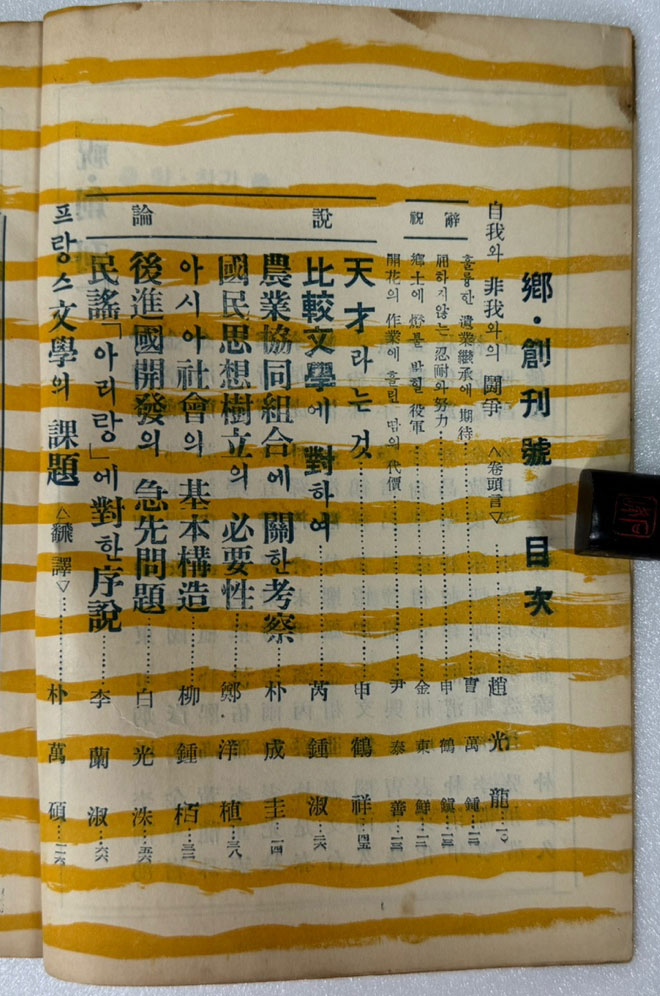 鄕·創刊號 目次
自我와 非我와의 鬪爭 〈卷頭言〉 … 趙光龍 … 一〇
祝辭
훌륭한 遺業繼承에 期待 … 曺萬鍾
굴하지않는 忍耐와 努力 … 申鶴鎭
鄕土에 燈불 밝힐 役軍 … 金東鮮 … 一二
開花의 作業에 흘린 땀의 代價 … 尹泰善
論說
天才라는 것 … 申鶴祥 … 四五
比較文學에 對하여 … 芮鍾淑 … 二六
農業協同組合에 關한 考察 … 朴成圭 … 一四
國民思想樹立의 必要性 … 鄭·洋植 … 三八
아시아社會의 基本構造 … 柳鍾栢 … 三二
後進國開發의 急先問題 … 白光洙 … 五六
民謠「아리랑」에 對한 序說 … 李蘭淑 … 六六
프랑스文學의 課題 〈飜譯〉 … 朴萬碩 … 一二六